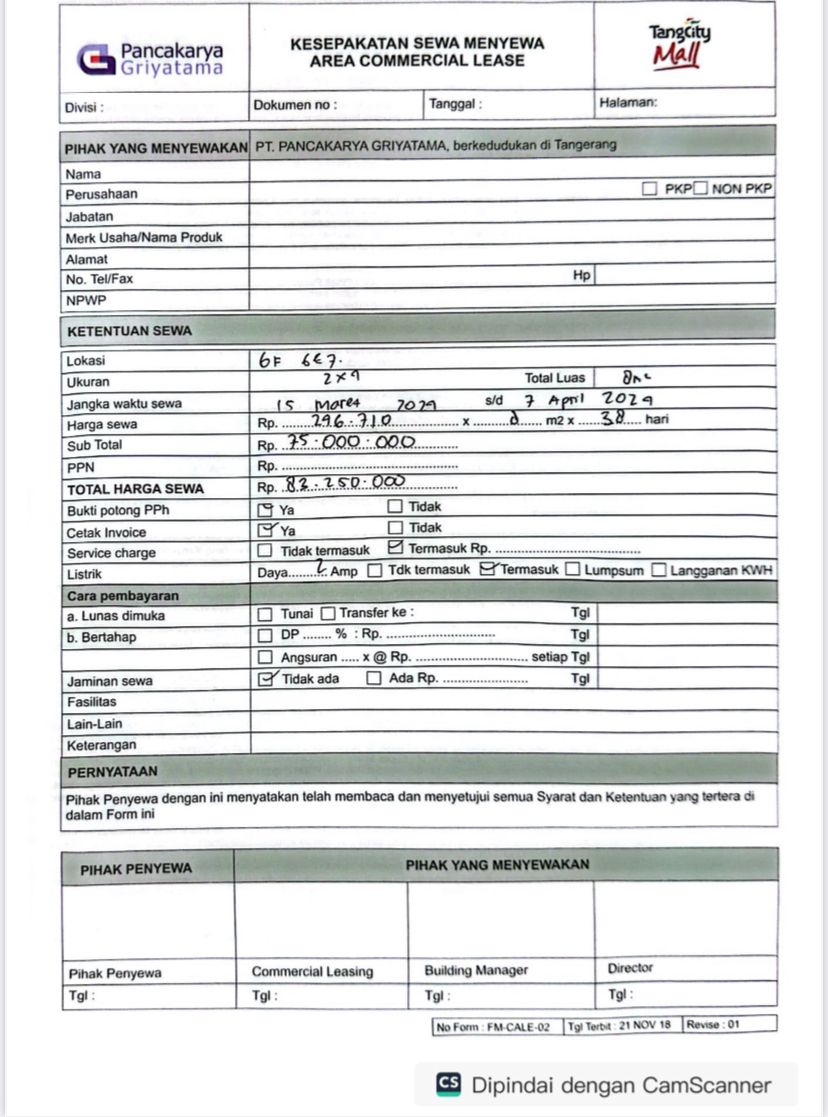 Pancakarya
Griyatama
KESEPAKATAN SEWA MENYEWA
AREA COMMERCIAL LEASE
TangCity
Mall
Divisi :
Dokumen no :
Tanggal :
Halaman:
PIHAK YANG MENYEWAKAN PT. PANCAKARYA GRIYATAMA, berkedudukan di Tangerang
Nama
Perusahaan PKP NON PKP
Jabatan
Merk Usaha/Nama Produk
Alamat
No. Tel/Fax Hp
NPWP
KETENTUAN SEWA
Lokasi GF
Ukuran Total Luas
Jangka waktu sewa 15 Maret 2024 s/d 7 April 2024
Harga sewa Rp. ........296.710................ x .........8...... m2 x ......38..... hari
Sub Total Rp. ..75.000.000...........
PPN Rp. ................................................
TOTAL HARGA SEWA Rp. ..83.250.000.............
Bukti potong PPh Ya Tidak
Cetak Invoice Ya Tidak
Service charge Tidak termasuk Termasuk Rp. .......................................
Listrik Daya.........2. Amp Tdk termasuk Termasuk Lumpsum Langganan KWH
Cara pembayaran
a. Lunas dimuka Tunai Transfer ke : Tgl
b. Bertahap DP ........ % : Rp. ............................. Tgl
Angsuran ..... x @ Rp. .............................. setiap Tgl
Jaminan sewa Tidak ada Ada Rp. ....................... Tgl
Fasilitas
Lain-Lain
Keterangan
PERNYATAAN
Pihak Penyewa dengan ini menyatakan telah membaca dan menyetujui semua Syarat dan Ketentuan yang tertera di
dalam Form ini
PIHAK PENYEWA PIHAK YANG MENYEWAKAN
Pihak Penyewa Commercial Leasing Building Manager Director
Tgl : Tgl : Tgl : Tgl :
No Form : FM-CALE-02 Tgl Terbit : 21 NOV 18 Revise : 01
CS Dipindai dengan CamScanner